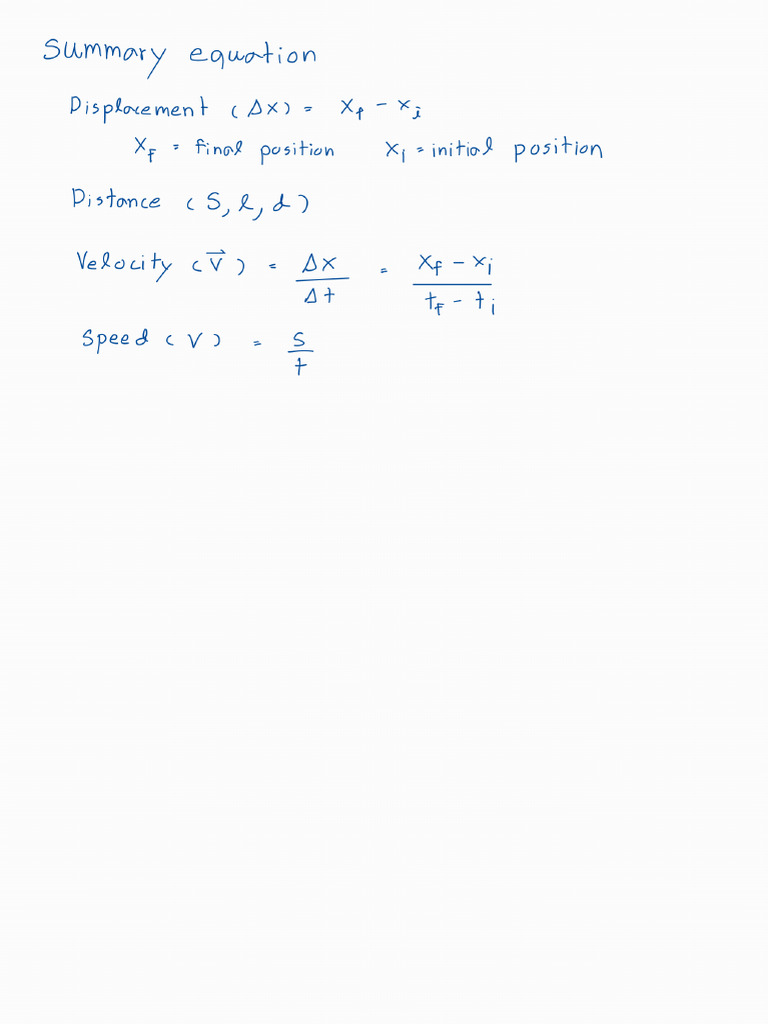 Summary equation
Displacement (Δx) = x_f - x_i
x_f = final position x_i = initial position
Distance (S, l, d)
Velocity (v⃗) = Δx/Δt = (x_f - x_i)/(t_f - t_i)
Speed (v) = S/t